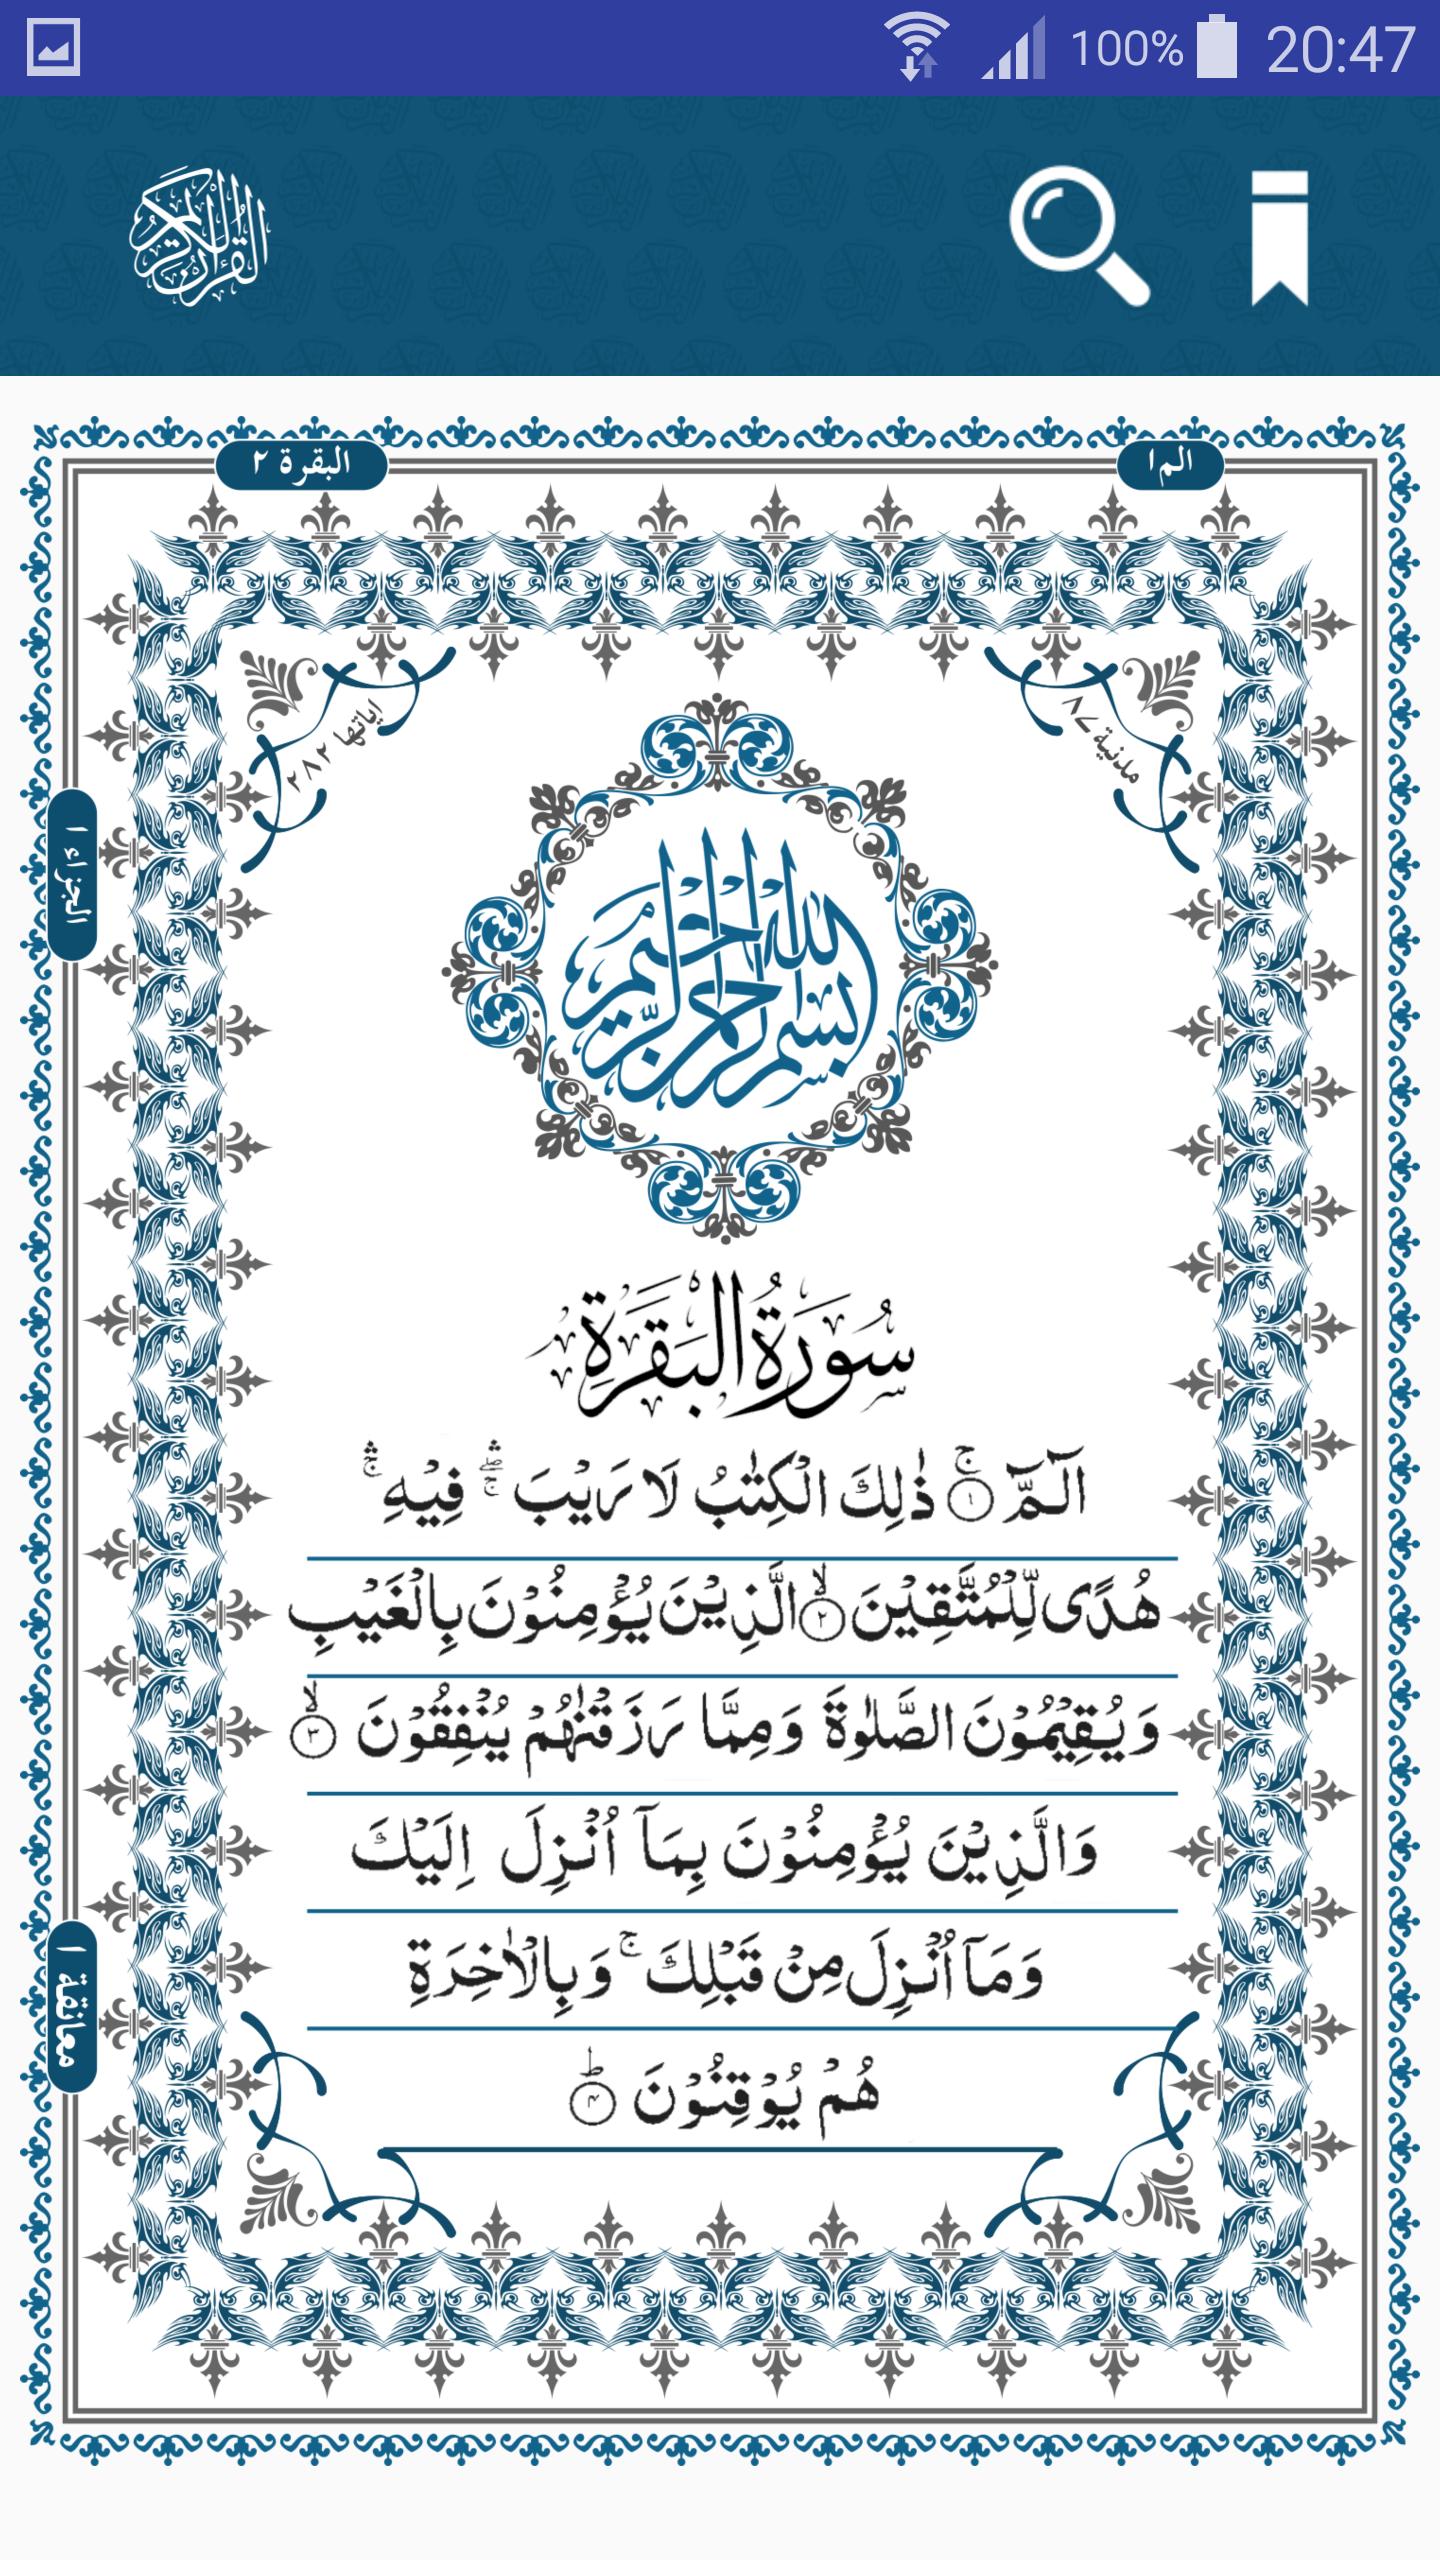 100% 20:47
القرآن الكريم
الم ١
البقرة ٢
مدنية ٨٧
اياتها ٢٨٢
الجزاء ١
بسم الله الرحمن الرحيم
سُورَةُ الْبَقَرَةِ
الٓمّٓ ۚ﴿١﴾ ذٰلِكَ الْكِتٰبُ لَا رَيْبَ ۛۖۚ فِيْهِ ۛۚ
هُدًى لِّلْمُتَّقِيْنَ ۙ﴿٢﴾ الَّذِيْنَ يُؤْمِنُوْنَ بِالْغَيْبِ
وَيُقِيْمُوْنَ الصَّلٰوةَ وَمِمَّا رَزَقْنٰهُمْ يُنْفِقُوْنَ ۙ﴿٣﴾
وَالَّذِيْنَ يُؤْمِنُوْنَ بِمَاۤ اُنْزِلَ اِلَيْكَ
وَمَاۤ اُنْزِلَ مِنْ قَبْلِكَ ۚ وَبِالْاٰخِرَةِ
هُمْ يُوْقِنُوْنَ ؕ﴿۴﴾
معانقة ١